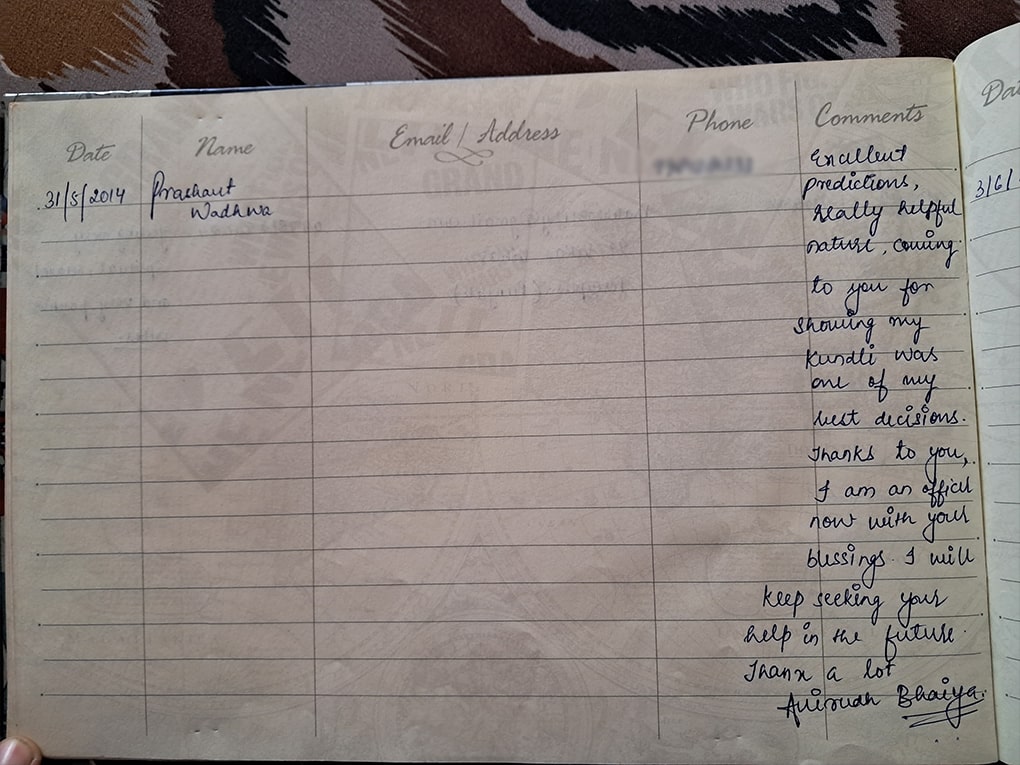 Date Name Email / Address Phone Comments Dat
31/5/2014 Prashant
Wadhwa
3/6/
Excellent
predictions,
really helpful
nature, coming
to you for
showing my
Kundli was
one of my
best decisions.
Thanks to you,
I am an officer
now with your
blessings. I will
keep seeking your
help in the future.
Thanx a lot
Anirudh Bhaiya.